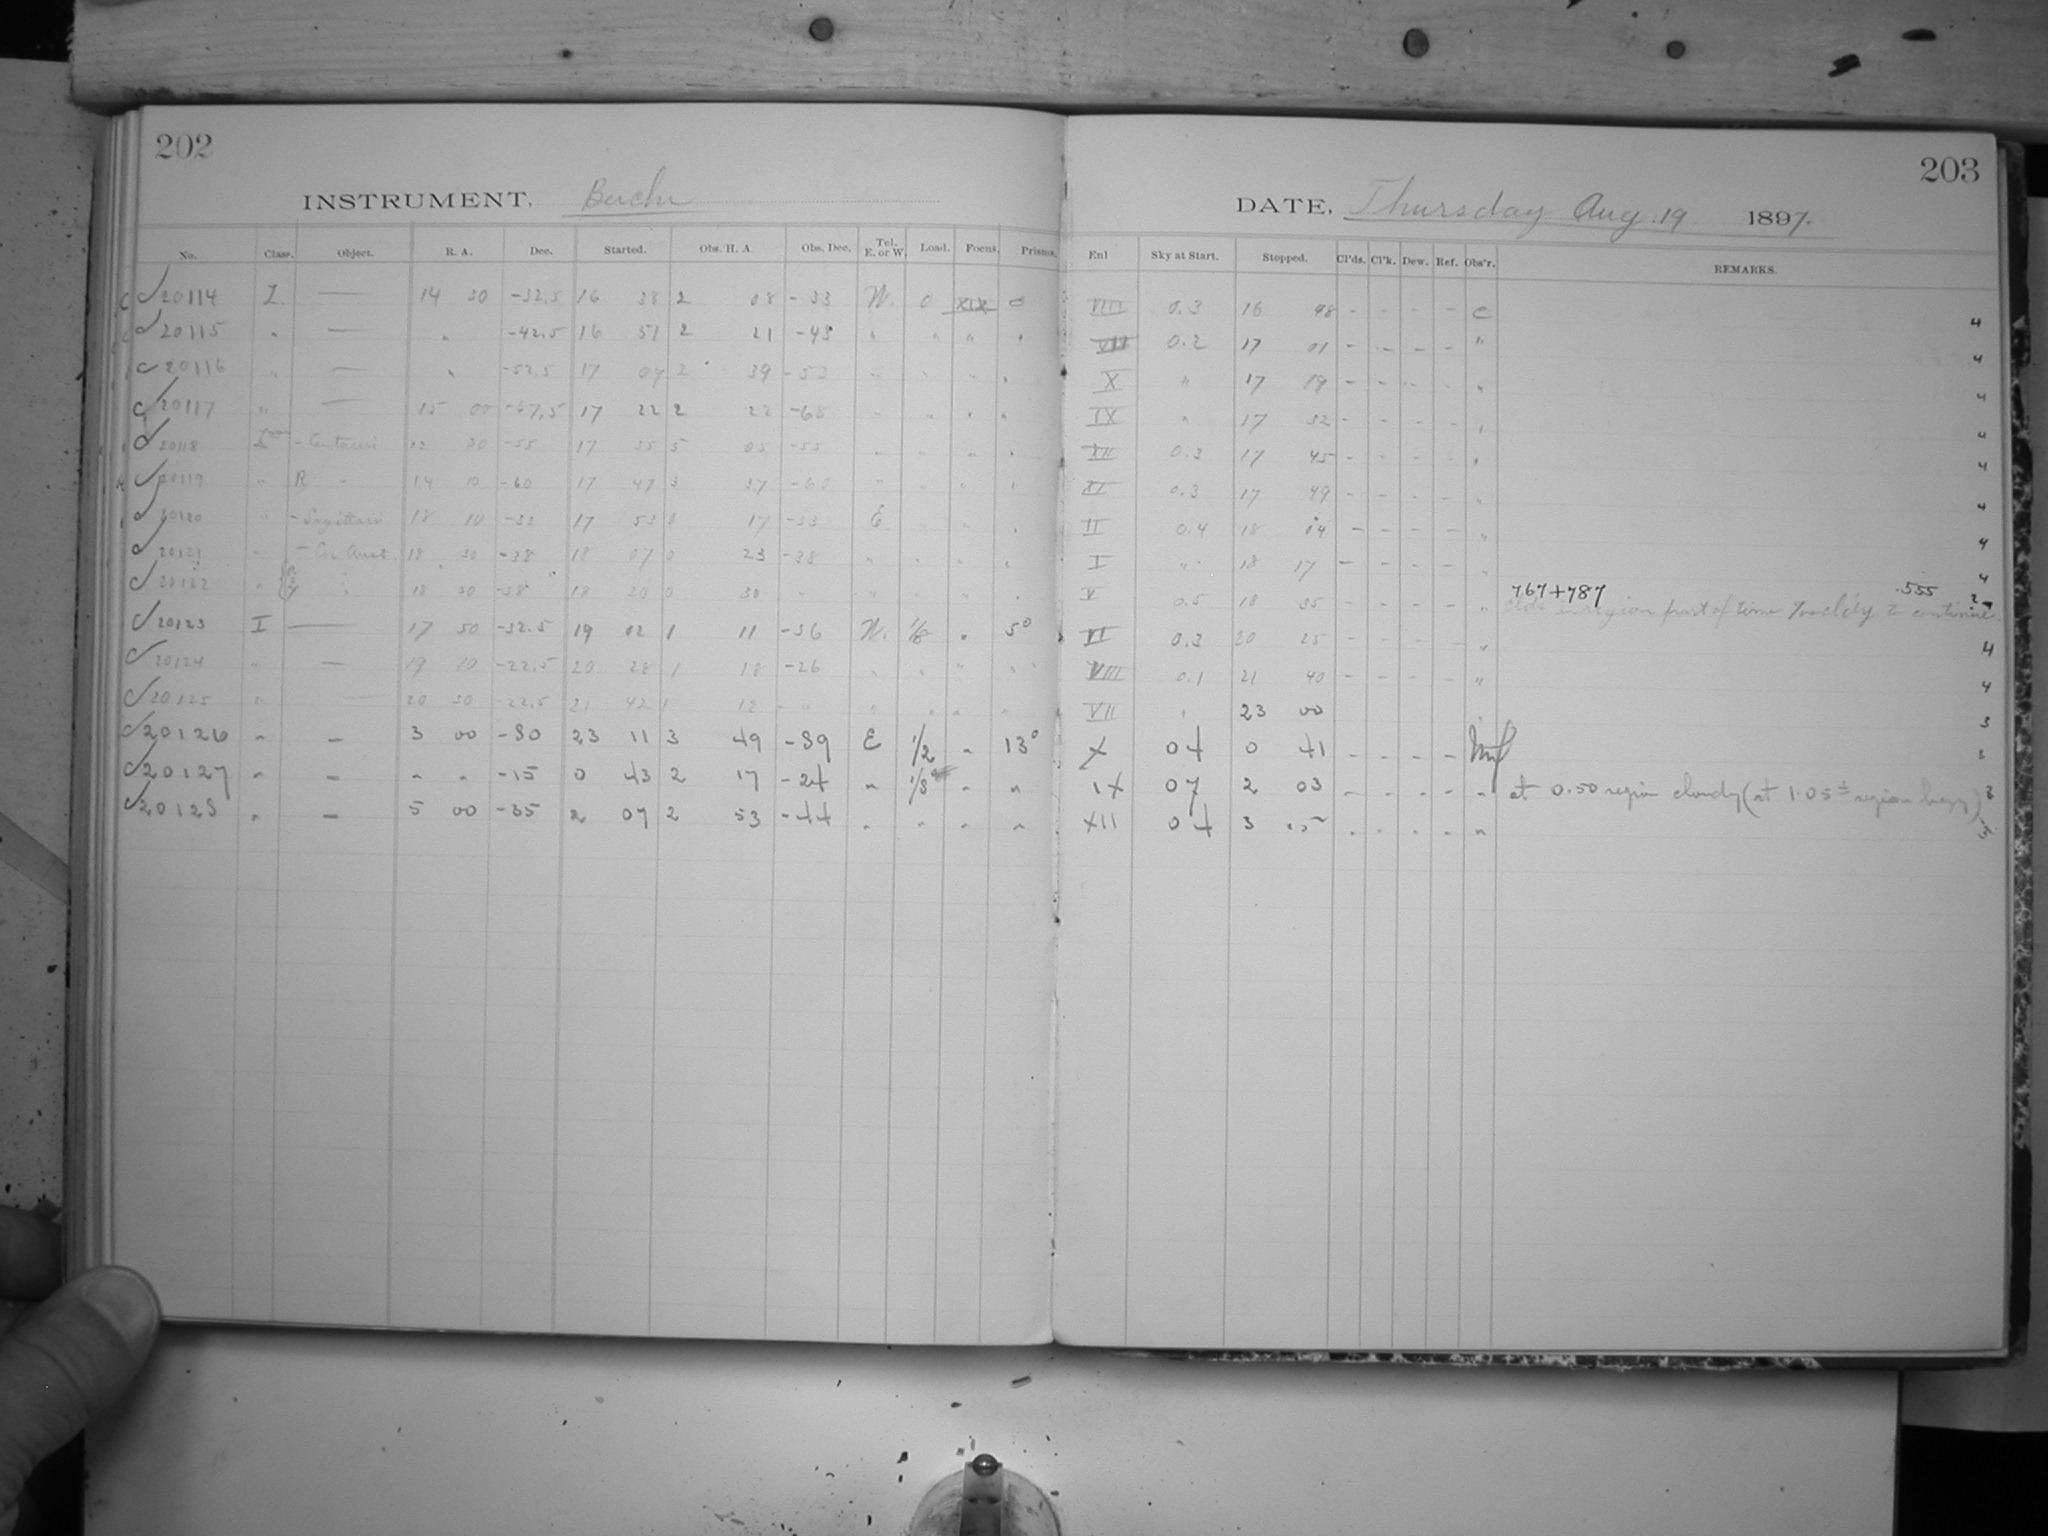 202
INSTRUMENT, Bache
No. Class. Object. R. A. Dec. Started. Obs. H. A. Obs. Dec. Tel. E. or W. Load. Focus. Prisms.
C 20114 I. — 14 30 -32.5 16 38 2 08 -33 W. 0 XIX 0
20115 " — " -42.5 16 51 2 21 -43 " " " "
20116 " — " -52.5 17 09 2 39 -53 " " " "
20117 " — 15 00 -67.5 17 22 2 22 -68 " " " "
20118 - Centauri 12 30 -55 17 35 5 05 -55 " " " "
20119 " R " 14 10 -60 17 47 3 37 -60 " " " "
20120 " - Sagittarii 18 10 -33 17 53 0 17 -33 E " " "
20121 " - Cor. Aust. 18 30 -38 18 07 0 23 -38 " " " "
20122 " " 18 50 -38 18 20 0 30 " " " " "
20123 I — 17 50 -32.5 19 02 1 11 -36 W. 1/8 " 5°
20124 " — 19 10 -22.5 20 28 1 18 -26 " " " "
20125 " — 20 30 -22.5 21 42 1 12 " " " " "
20126 " — 3 00 -80 23 11 3 49 -89 E 1/2 " 13°
20127 " — " " -15 0 43 2 17 -24 " 1/8 " "
20128 " — 5 00 -35 2 07 2 53 -44 " " " "
203
DATE, Thursday Aug. 19 1897.
Enl Sky at Start. Stopped. Cl'ds. Cl'k. Dew. Ref. Obs'r. REMARKS.
VIII 0.3 16 48 - - - - C 4
VII 0.2 17 01 - - - - " 4
X " 17 19 - - - - " 4
IX " 17 32 - - - - " 4
XII 0.3 17 45 - - - - " 4
XI 0.3 17 49 - - - - " 4
II 0.4 18 04 - - - - " 4
I " 18 17 - - - - " 4
767+787 .555
V 0.5 18 35 - - - - " clds in region part of time Too cl'dy to continue 2
VI 0.3 20 25 - - - - " 4
VIII 0.1 21 40 - - - - " 4
VII " 23 00 3
X 04 0 41 - - - - 3
IX 07 2 03 - - - - " at 0.50 region cloudy (at 1.05± region hazy) 3
XII 04 3 " " " " " 3